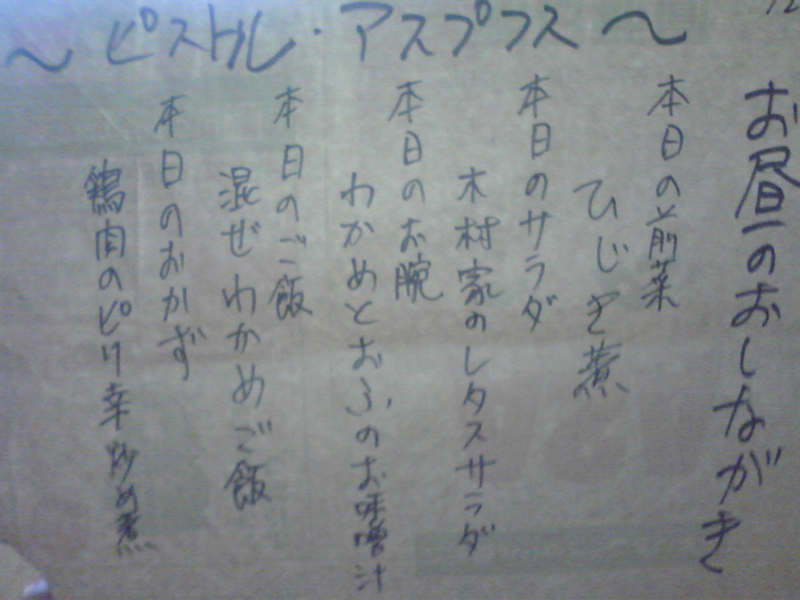 ～ピストル・アスプフス～
お昼のおしながき
本日の前菜
ひじき煮
本日のサラダ
木村家のレタスサラダ
本日のお腕
わかめとおふのお味噌汁
本日のご飯
混ぜわかめご飯
本日のおかず
鶏肉のピリ辛炒め煮